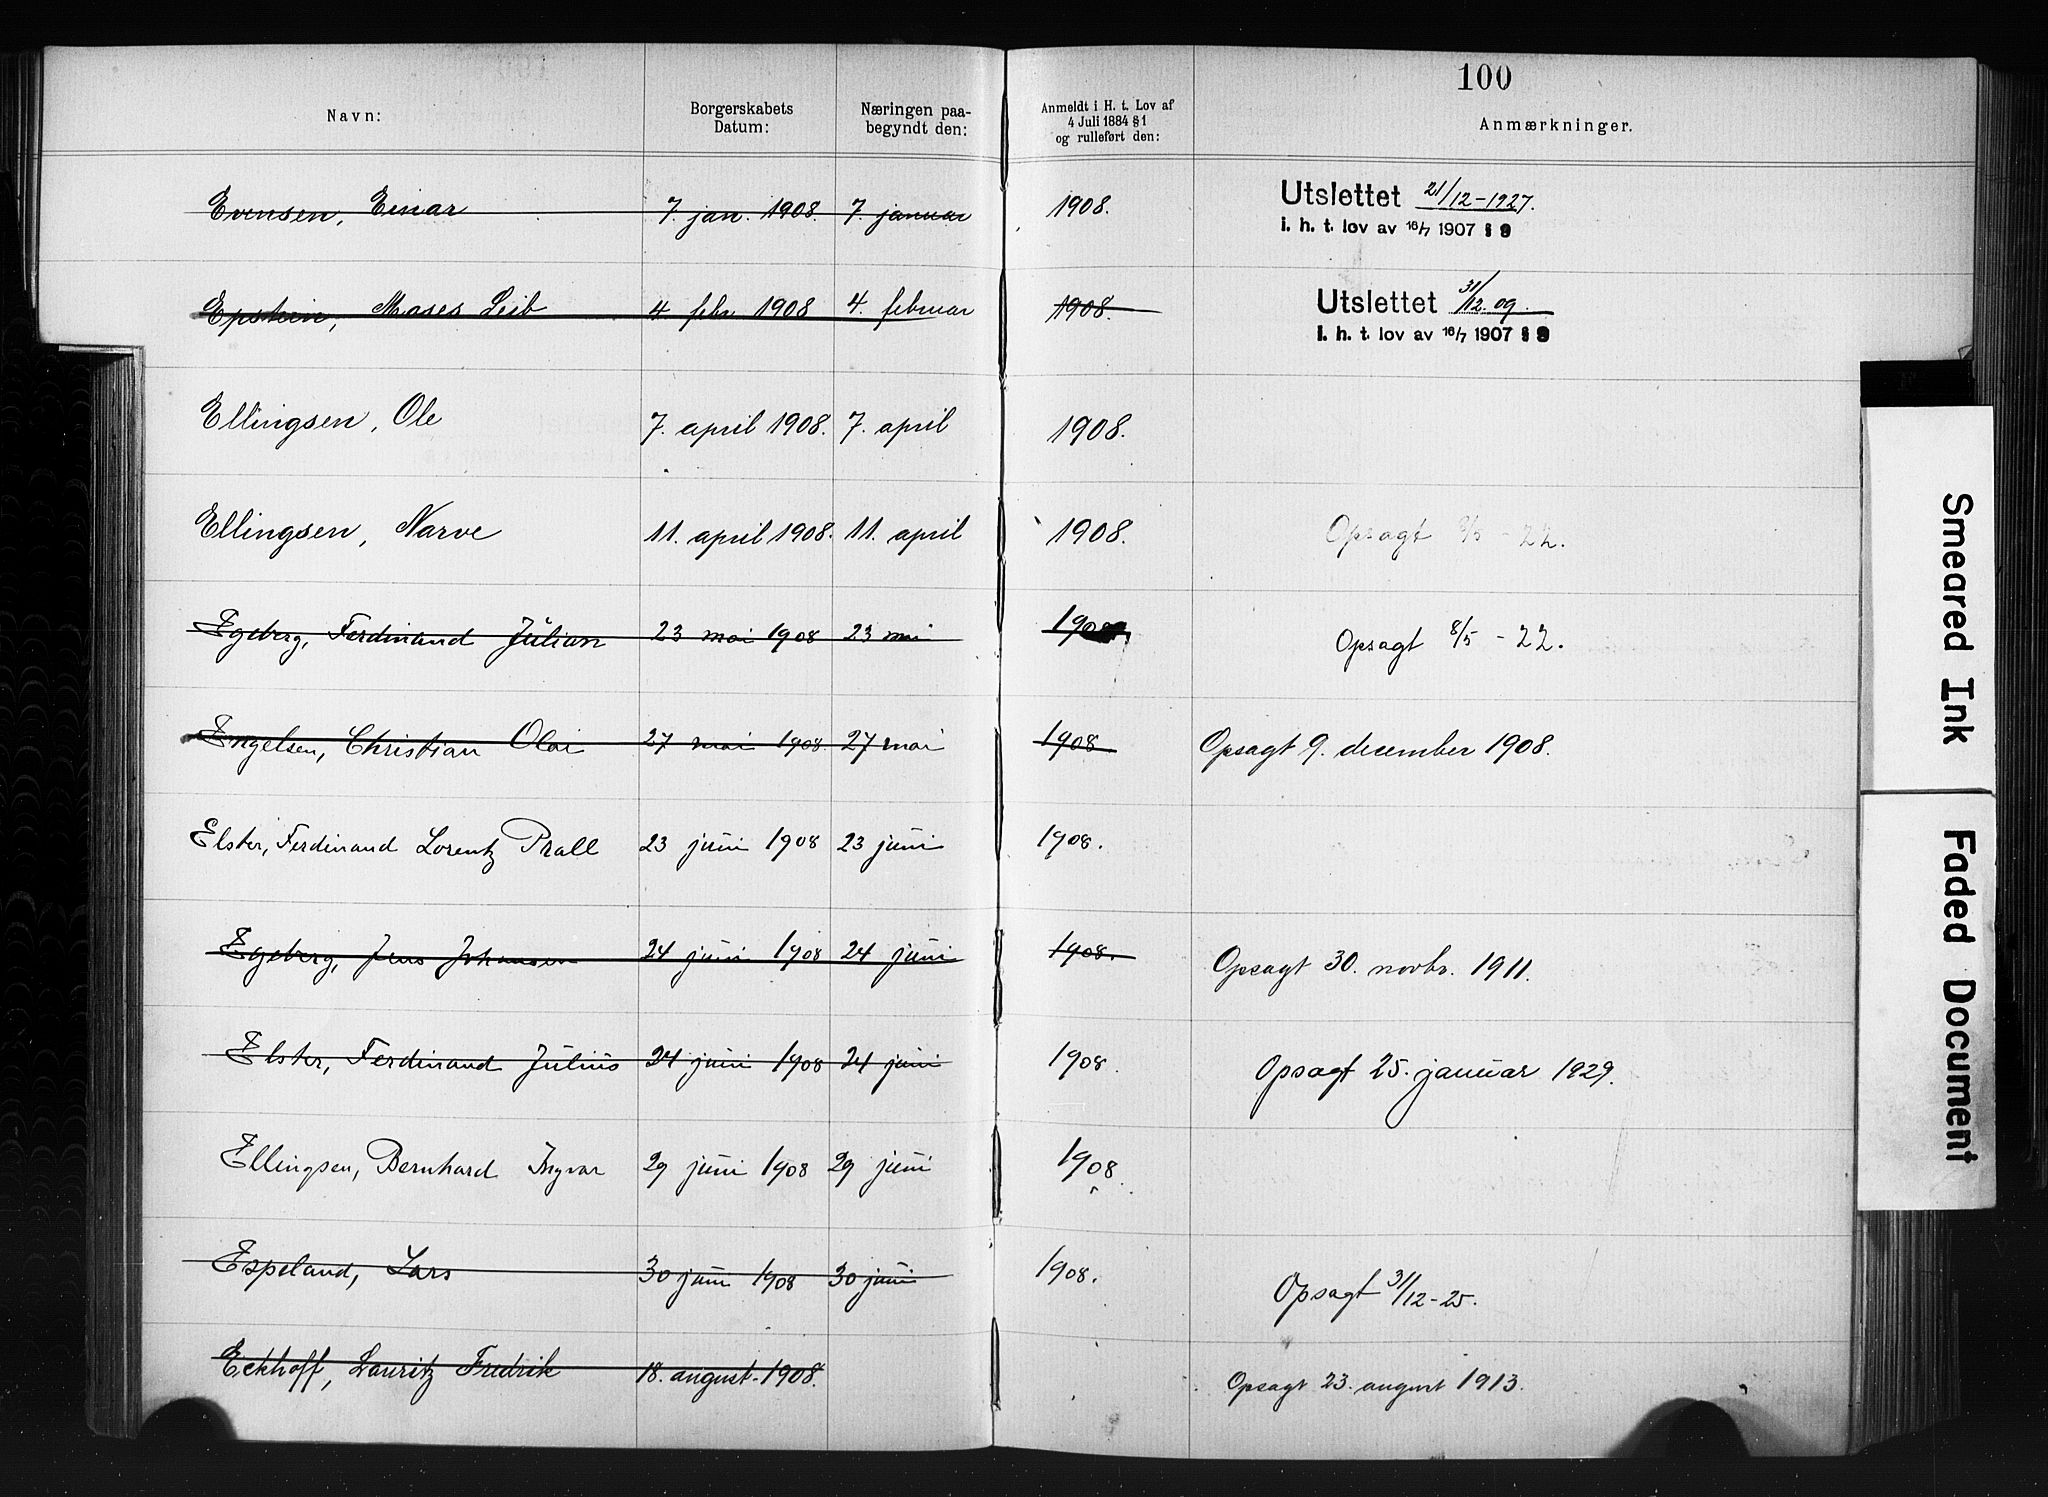 100
Navn: Borgerskabets Datum: Næringen paabegyndt den: Anmeldt i H. t. Lov af 4 Juli 1884 § 1 og rulleført den: Anmærkninger.
Evensen, Einar 7. jan. 1908. 7. januar 1908. Utslettet 21/12-1927.
i. h. t. lov av 16/7 1907 § 9
Epstein, Moses Leib 4 febr 1908 4. februar 1908. Utslettet 31/12.09.
i. h. t. lov av 16/7 1907 § 9
Ellingsen, Ole 7. april 1908. 7. april 1908.
Ellingsen, Narve 11. april 1908. 11. april 1908. Opsagt 8/5 - 22.
Egeberg, Ferdinand Julian 23 mai 1908 23 mai 1908. Opsagt 8/5 - 22.
Engelsen, Christian Olai 27 mai 1908. 27 mai 1908 Opsagt 9. december 1908.
Elster, Ferdinand Lorentz Prall 23 juni 1908 23 juni 1908.
Egeberg, Jens Johansen 24 juni 1908 24 juni 1908. Opsagt 30. novbr. 1911.
Elster, Ferdinand Julius 24 juni 1908 24 juni 1908. Opsagt 25. januar 1929.
Ellingsen, Bernhard Ingvar 29 juni 1908 29 juni 1908.
Espeland, Lars 30 juni 1908 30 juni 1908. Opsagt 31/12-25.
Eckhoff, Lauritz Fredrik 18. august 1908. Opsagt 23. august 1913.
Smeared Ink
Faded Document